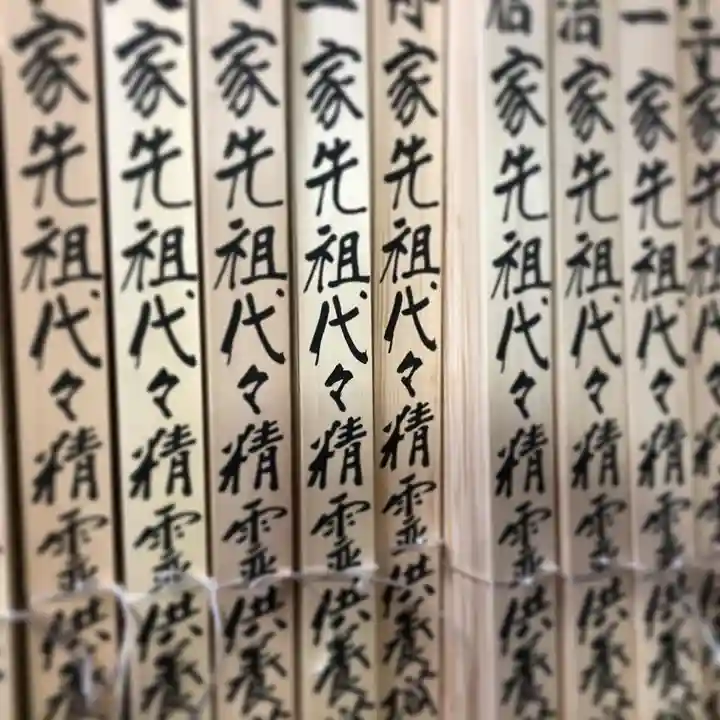 家先祖代々精霊供養
一家先祖代々精霊供養
治家先祖代々精霊供養
家先祖代々精霊供養
家先祖代々精霊供養
家先祖代々精霊供養
家先祖代々精霊供養
家先祖代々精霊供養
家先祖代々精霊供養